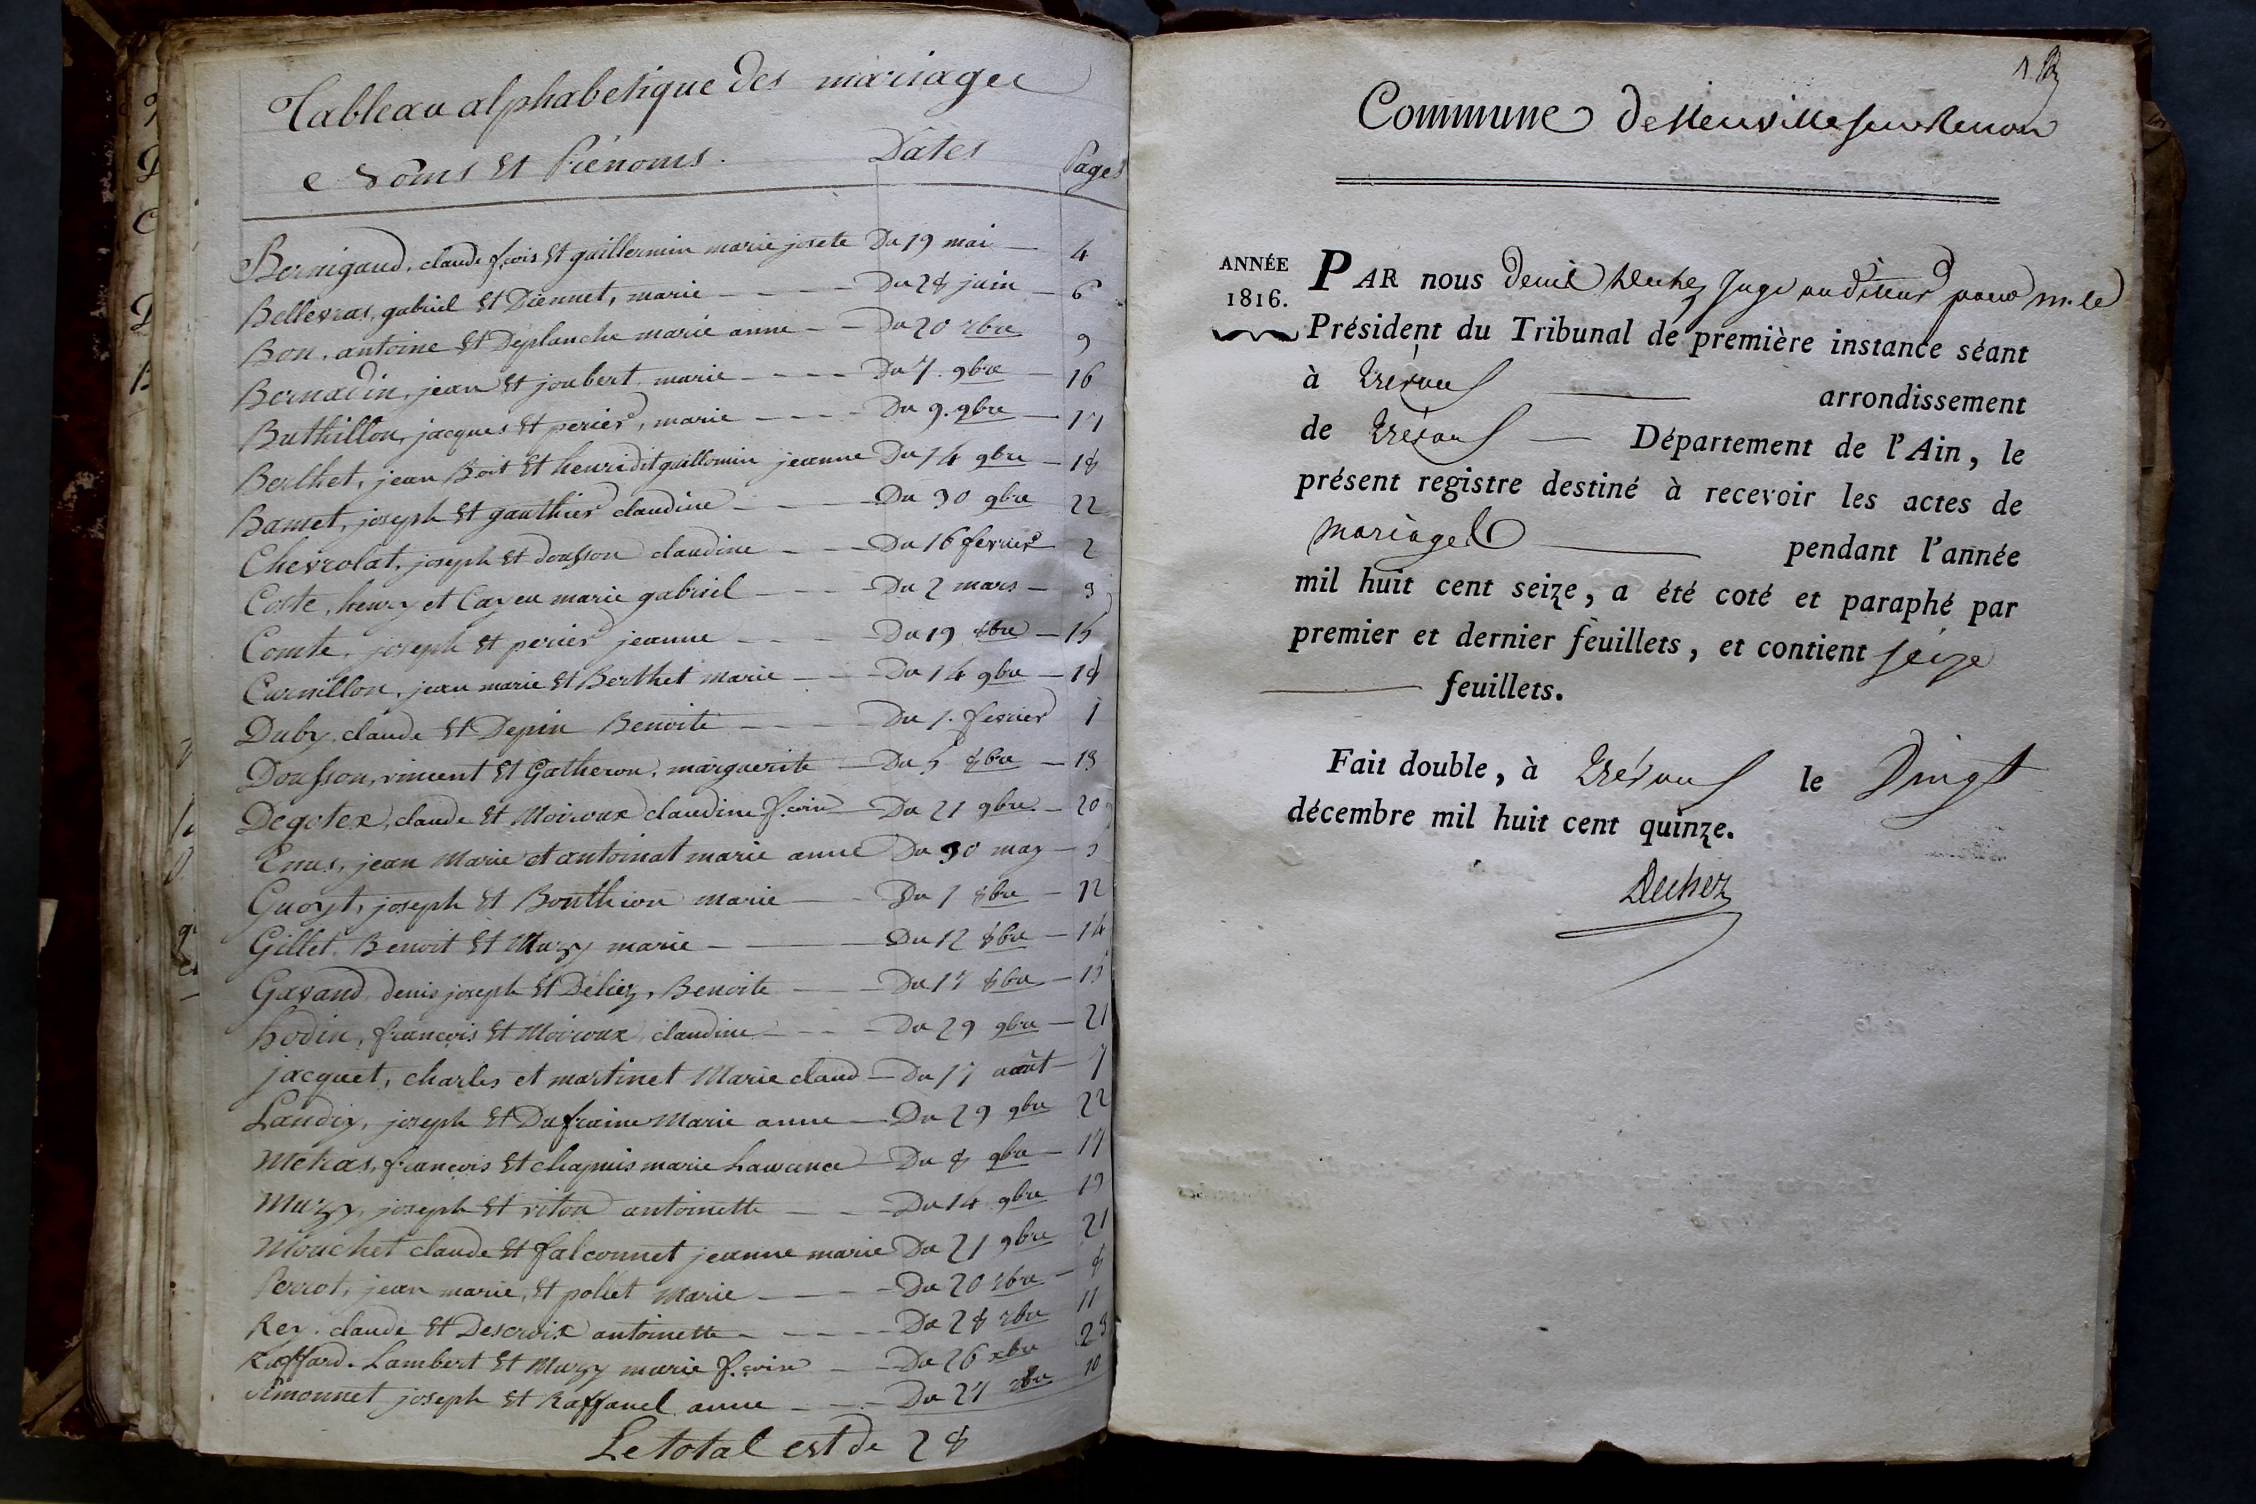 Tableau alphabetique des mariages
Noms et Prénoms. Dates Pages
Bernigaud, claude fçois et guillermin marie josete Du 19 mai 4
Bellevras, gabriel et Diennet, marie Du 28 juin 6
Bon, antoine et Deplanche marie anne Du 20 7bre 9
Bernadin, jean et joubert marie Du 7. 9bre 16
Buthillon, jacques et perier, marie Du 9. 9bre 17
Berthet, jean Boit et henri dit guillomin jeanne Du 14 9bre 18
Bamet, joseph et gauthier claudine Du 30 9bre 22
Chevrolat, joseph et Dousson claudine Du 16 fevrier 2
Coste, henry et Cayeu marie gabriel Du 2 mars 3
Comte, joseph et perier jeanne Du 19 8bre 15
Curnillon, jean marie et Berthet marie Du 14 9bre 18
Duby, claude et Depin Benoite Du 1. fevrier 1
Dousson, vincent et Gatheron, marguerite Du 5 8bre 13
Degotex, claude et Moiroux claudine fçoise Du 21 9bre 20
jean Marie et antoinat marie anne Du 30 may 5
Guoyt, joseph et Bouthion marie Du 1 8bre 12
Gillet, Benoit et Muzy marie Du 12 8bre 14
Gavand, denis joseph et Déliez, Benoite Du 17 8bre 15
hodin, françois et Moiroux claudine Du 29 9bre 21
jacquet, charles et martinet Marie claud Du 17 août 7
Laudiy, joseph et Dufraine Marie anne Du 29 9bre 22
Metras, françois et chapuis marie Laurance Du 8 9bre 17
Muzy, joseph et viton antoinette Du 14 9bre 19
Mouchet claude et falconnet jeanne marie Du 21 9bre 21
Perrot, jean marie, et pollet Marie Du 20 7bre 8
Rey, claude et Descroix antoinette Du 28 7bre 11
Ruffard, Lambert et Muzy marie fçoise Du 26 xbre 23
Simonnet joseph et Raffanel anne Du 27 7bre 10
Le total est de 28
Commune de Neuville sur Renon
ANNÉE
1816.
PAR nous denis Dechez Juge auditeur pour mr. le
Président du Tribunal de première instance séant
à Trévoux arrondissement
de Trévoux Département de l'Ain, le
présent registre destiné à recevoir les actes de
Mariages pendant l'année
mil huit cent seize, a été coté et paraphé par
premier et dernier feuillets, et contient seize
feuillets.
Fait double, à Trévoux le Vingt
décembre mil huit cent quinze.
Dechez